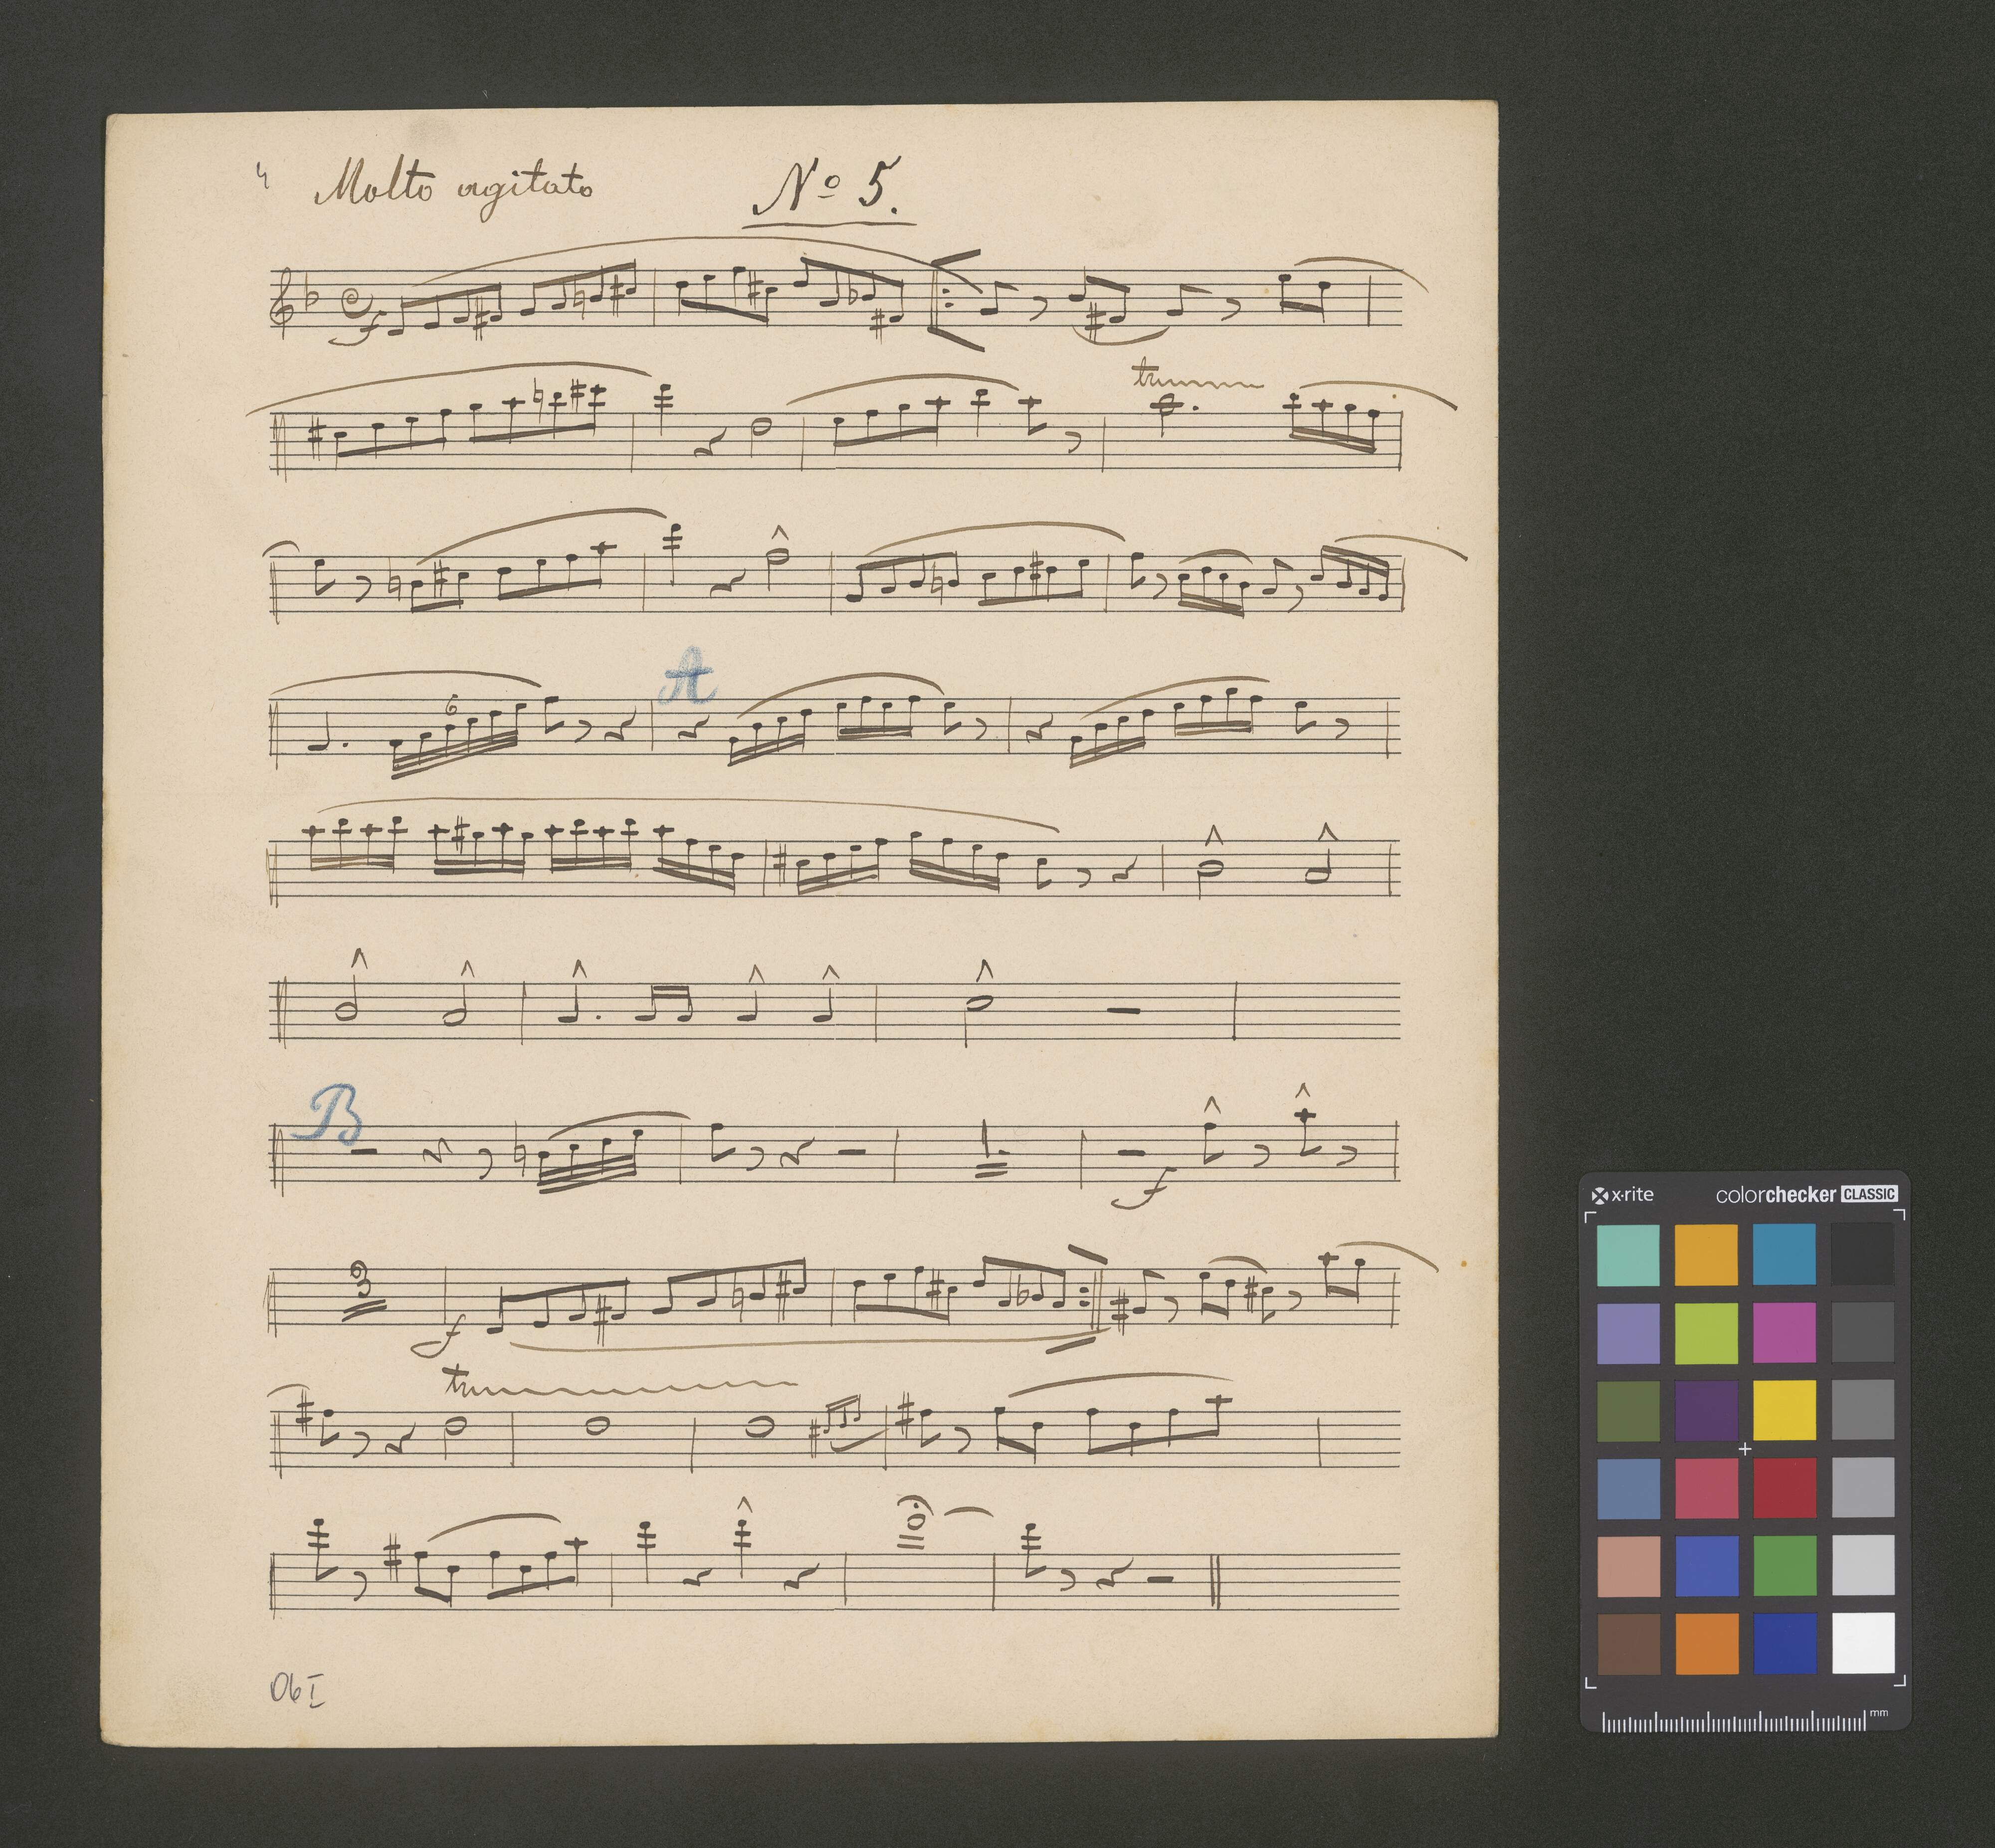 4 Molto agitato No 5.
f
tr
6
A
B
f
3
f
tr
Ob I
x·rite colorchecker CLASSIC
mm